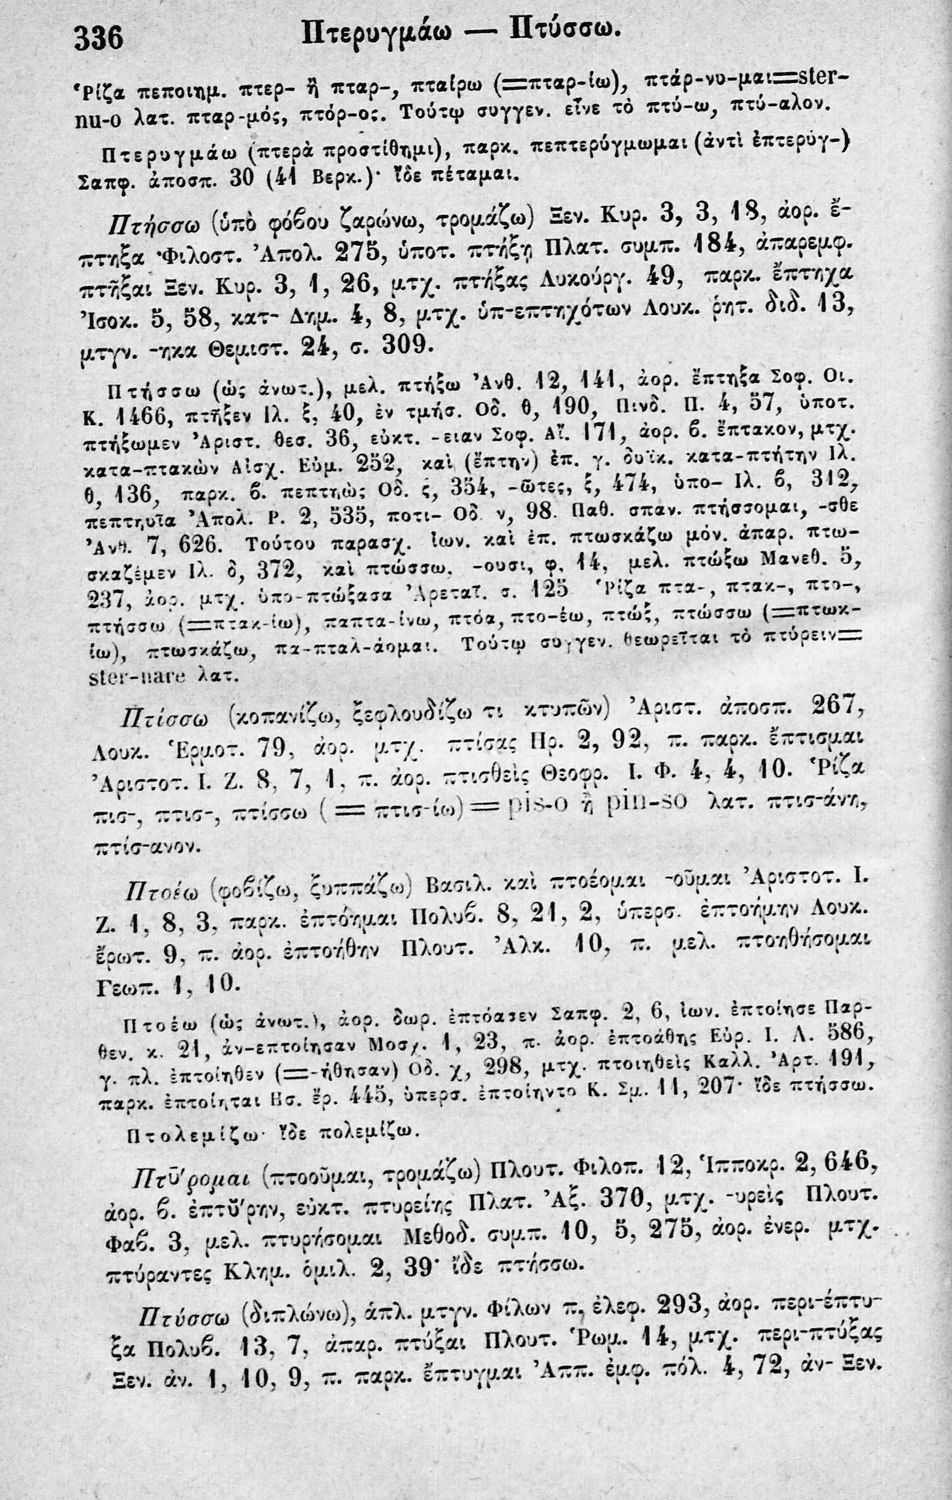 336 Πτερυγμάω — Πτύσσω.
Ῥίζα πεποιημ. πτερ- ἢ πταρ-, πταίρω (=πταρ-ίω), πτάρ-νυ-μαι=ster-
nu-o λατ. πταρ-μός, πτόρ-ος. Τούτῳ συγγεν. εἶνε τὸ πτύ-ω, πτύ-αλον.
Πτερυγμάω (πτερὰ προστίθημι), παρκ. πεπτερύγμωμαι (ἀντὶ ἐπτερύγ-)
Σαπφ. ἀποσπ. 30 (41 Βερκ.)· ἴδε πέταμαι.
Πτήσσω (ὑπὸ φόβου ζαρώνω, τρομάζω) Ξεν. Κυρ. 3, 3, 18, ἀορ. ἔ-
πτηξα Φιλοστ. Ἀπολ. 275, ὑποτ. πτήξῃ Πλατ. συμπ. 184, ἀπαρεμφ.
πτῆξαι Ξεν. Κυρ. 3, 1, 26, μτχ. πτήξας Λυκούργ. 49, παρκ. ἔπτηχα
Ἰσοκ. 5, 58, κατ- Δημ. 4, 8, μτχ. ὑπ-επτηχότων Λουκ. ῥητ. διδ. 13,
μτγν. -ηκα Θεμιστ. 24, σ. 309.
Πτήσσω (ὡς ἀνωτ.), μελ. πτήξω Ἀνθ. 12, 141, ἀορ. ἔπτηξα Σοφ. Οι.
Κ. 1466, πτῆξεν Ιλ. ξ, 40, ἐν τμήσ. Οδ. θ, 190, Πινδ. Π. 4, 57, ὑποτ.
πτήξωμεν Ἀριστ. θεσ. 36, εὐκτ. -ειαν Σοφ. Αἴ. 171, ἀορ. β. ἔπτακον, μτχ.
κατα-πτακὼν Αἰσχ. Εὐμ. 252, καὶ (ἔπτην) ἐπ. γ. δυϊκ. κατα-πτήτην Ιλ.
θ, 136, παρκ. β. πεπτηὼς Οδ. ξ, 354, -ῶτες, ξ, 474, ὑπο- Ιλ. β, 312,
πεπτηυῖα Ἀπολ. Ρ. 2, 535, ποτι- Οδ. ν, 98. Παθ. σπαν. πτήσσομαι, -σθε
Ἀνθ. 7, 626. Τούτου παρασχ. ἰων. καὶ ἐπ. πτωσκάζω μόν. ἀπαρ. πτω-
σκαζέμεν Ιλ. δ, 372, καὶ πτώσσω, -ουσι, φ. 14, μελ. πτώξω Μανεθ. 5,
237, ἀορ. μτχ. ὑπο-πτώξασα Ἀρεταῖ. σ. 125 Ῥίζα πτα-, πτακ-, πτο-,
πτήσσω (=πτακ-ίω), παπτα-ίνω, πτόα, πτο-έω, πτώξ, πτώσσω (=πτωκ-
ίω), πτωσκάζω, πα-πταλ-άομαι. Τούτῳ συγγεν. θεωρεῖται τὸ πτύρειν=
ster-nare λατ.
Πτίσσω (κοπανίζω, ξεφλουδίζω τι κτυπῶν) Ἀριστ. ἀποσπ. 267,
Λουκ. Ἑρμοτ. 79, ἀορ. μτχ. πτίσας Ηρ. 2, 92, π. παρκ. ἔπτισμαι
Ἀριστοτ. Ι. Ζ. 8, 7, 1, π. ἀορ. πτισθεὶς Θεοφρ. Ι. Φ. 4, 4, 10. Ῥίζα
πισ-, πτισ-, πτίσσω (= πτισ-ίω)= pis-o ἢ pin-so λατ. πτισ-άνη,
πτίσ-ανον.
Πτοέω (φοβίζω, ξυππάζω) Βασιλ. καὶ πτοέομαι -οῦμαι Ἀριστοτ. Ι.
Ζ. 1, 8, 3, παρκ. ἐπτόημαι Πολυβ. 8, 21, 2, ὑπερσ. ἐπτοήμην Λουκ.
ἔρωτ. 9, π. ἀορ. ἐπτοήθην Πλουτ. Ἀλκ. 10, π. μελ. πτοηθήσομαι
Γεωπ. 1, 10.
Πτοέω (ὡς ἀνωτ.), ἀορ. δωρ. ἐπτόασεν Σαπφ. 2, 6, ἰων. ἐπτοίησε Παρ-
θεν. κ. 21, ἀν-επτοίησαν Μοσχ. 1, 23, π. ἀορ. ἐπτοάθης Εὐρ. Ι. Α. 586,
γ. πλ. ἐπτοίηθεν (=-ήθησαν) Οδ. χ, 298, μτχ. πτοιηθεὶς Καλλ. Ἀρτ. 191,
παρκ. ἐπτοίηται Ησ. ἔρ. 445, ὑπερσ. ἐπτοίηντο Κ. Σμ. 11, 207· ἴδε πτήσσω.
Πτολεμίζω· ἴδε πολεμίζω.
Πτῡ́ρομαι (πτοοῦμαι, τρομάζω) Πλουτ. Φιλοπ. 12, Ἱπποκρ. 2, 646,
ἀορ. β. ἐπτῠ́ρην, εὐκτ. πτυρείης Πλατ. Ἀξ. 370, μτχ. -υρεὶς Πλουτ.
Φαβ. 3, μελ. πτυρήσομαι Μεθοδ. συμπ. 10, 5, 275, ἀορ. ἐνερ. μτχ.
πτύραντες Κλημ. ὁμιλ. 2, 39· ἴδε πτήσσω.
Πτύσσω (διπλώνω), ἁπλ. μτγν. Φίλων π. ἐλεφ. 293, ἀορ. περι-έπτυ-
ξα Πολυβ. 13, 7, ἀπαρ. πτύξαι Πλουτ. Ῥωμ. 14, μτχ. περι-πτύξας
Ξεν. ἀν. 1, 10, 9, π. παρκ. ἔπτυγμαι Ἀππ. ἐμφ. πόλ. 4, 72, ἀν- Ξεν.